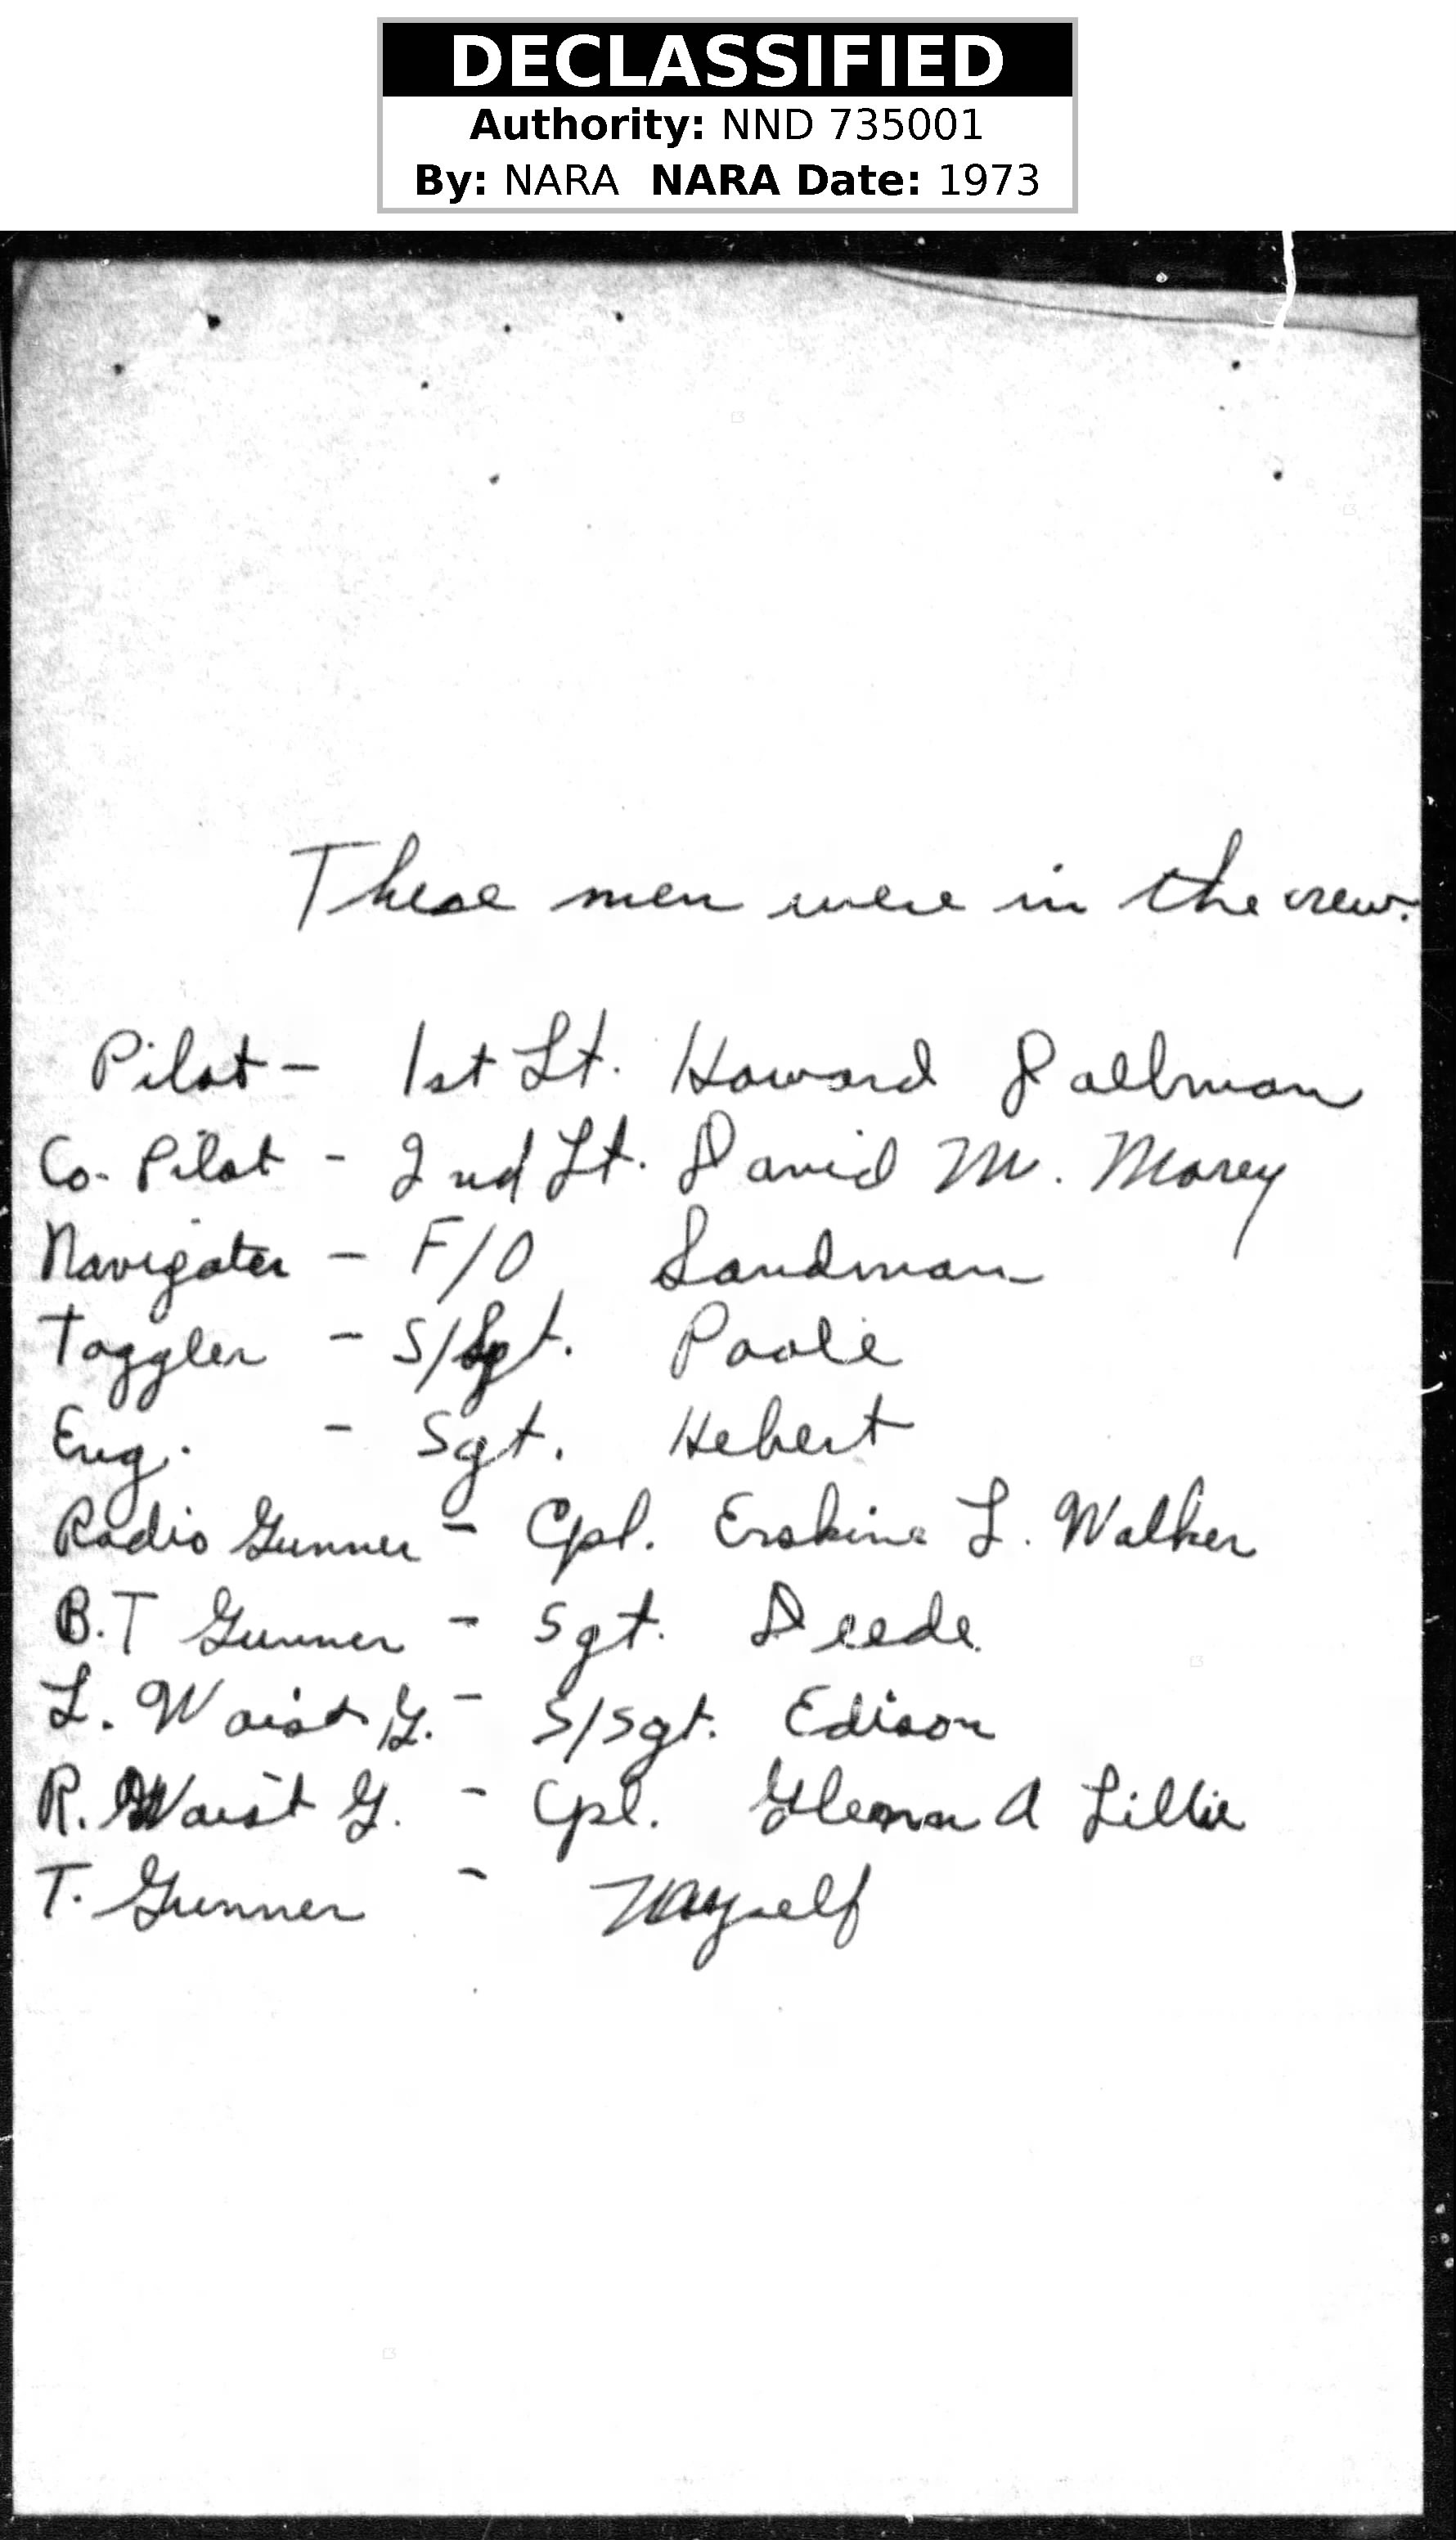 DECLASSIFIED
Authority: NND 735001
By: NARA NARA Date: 1973
These men were in the crew.
Pilot - 1st Lt. Howard Dallman
Co-Pilot - 2nd Lt. David M. Morey
Navigater - F/O Sandman
Toggler - S/Sgt. Poole
Eng. - Sgt. Hebert
Radio Gunner - Cpl. Erskine L. Walker
B.T Gunner - Sgt. Deede
L. Waist G. - S/Sgt. Edison
R. Waist G. - Cpl. Glenn A Lillie
T. Gunner - Myself